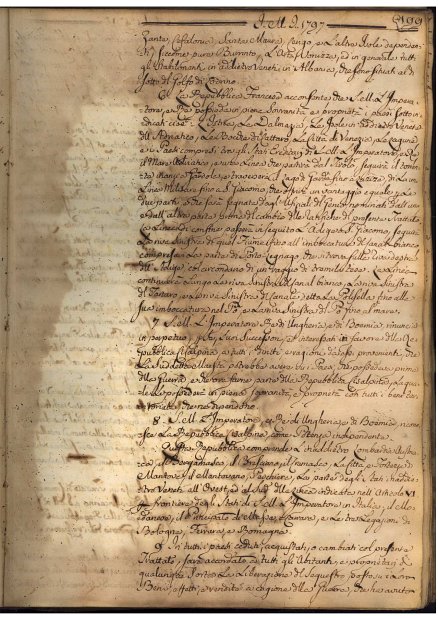 1797
199
Zante, Cefalonia, Santa Maura, Cerigo, e l'altre Isole dipenden-
ti, siccome pure Butrintò, L'Arta, Vonizza, ed in generale tutti
gli Stabilimenti Veneti in Albania, che sono situati al di
sotto del Golfo di
6. La Repubblica Francese acconsente che S. M. L'Impera-
tore, e Re possieda in piena Sovranità, e proprietà i paesi sotto in-
dicati cioè: L'Istria, La Dalmazia, Le Isole Venete
dell'Adriatico, Le Bocche di Cattaro, La Città di Venezia, Le Lagune
e i Paesi compresi con gli Stati Ereditarj di S. M. L'Imperatore e Re
il Mare Adriatico, e una Linea che partirà dal Tirolo, seguirà il torren-
te
Linea Militare fino a S. Giacomo, che offrirà un vantaggio eguale alle
due parti
e dall'altra parte prima del cambio delle Ratifiche del presente Trattato
La Linea di confine passerà in seguito L'Adige a S. Giacomo, seguirà
La riva Sinistra di questo Fiume sino all'imboccatura del Canal bianco
compresa la parte di Porto-Legnago, che si trova sulla riva destra
dell'Adige col circondario di un raggio di tre mila tese. La Linea
continuerà Lungo la riva Sinistra del Canal bianco, La riva Sinistra
di Tartaro, e la riva Sinistra del Canale detto La Polisella fino alla
sua imboccatura nel Pò, e La riva Sinistra del Pò fino al mare.
7. S. M. L'Imperatore Re di Ungheria, e di Boemia, rinuncia
in perpetuo, per se, suoi Successori, ed interessati in favore della Re-
pubblica Cisalpina a tutti i diritti e ragioni da essi provenienti, che
La Suddetta Maestà potrebbe avere sui Paesi che possedeva prima
della Guerra, e che ora fanno parte della Repubblica Cisalpina, La qua-
le Li possederà in piena Sovranità, e proprietà con tutti i beni ter-
ritoriali, che ne dipendono.
8. S. M. L'Imperatore, e Re di Ungheria e di Boemia, ricono-
sce La Repubblica Cisalpina come Potenza independente.
Questa Repubblica comprende L'in addietro Lombardia Austria-
ca, il Bergamasco, il Bresciano, il Cremasco, La Città e Fortezza di
Mantova, il Mantovano, Peschiera, La parte degli Stati in addie-
tro Veneti all'Ovest, ed al Sud della Linea indicata nell'Articolo VI
per frontiera degli Stati di S. M. L'Imperatore in Italia, il Mo-
danese, il Principato di Massa, e Carrara, e Le tre Legazioni di
Bologna, Ferrara, e Romagna.
9. In tutti i paesi ceduti, acquistati, o cambiati col presente
Trattato, sarà accordato a tutti gli Abitanti, e proprietarj di
qualunque Sorte La Liberazione del Sequestro posto su i Loro
Beni, effetti, e rendite a cagione della Guerra, che ha avuto